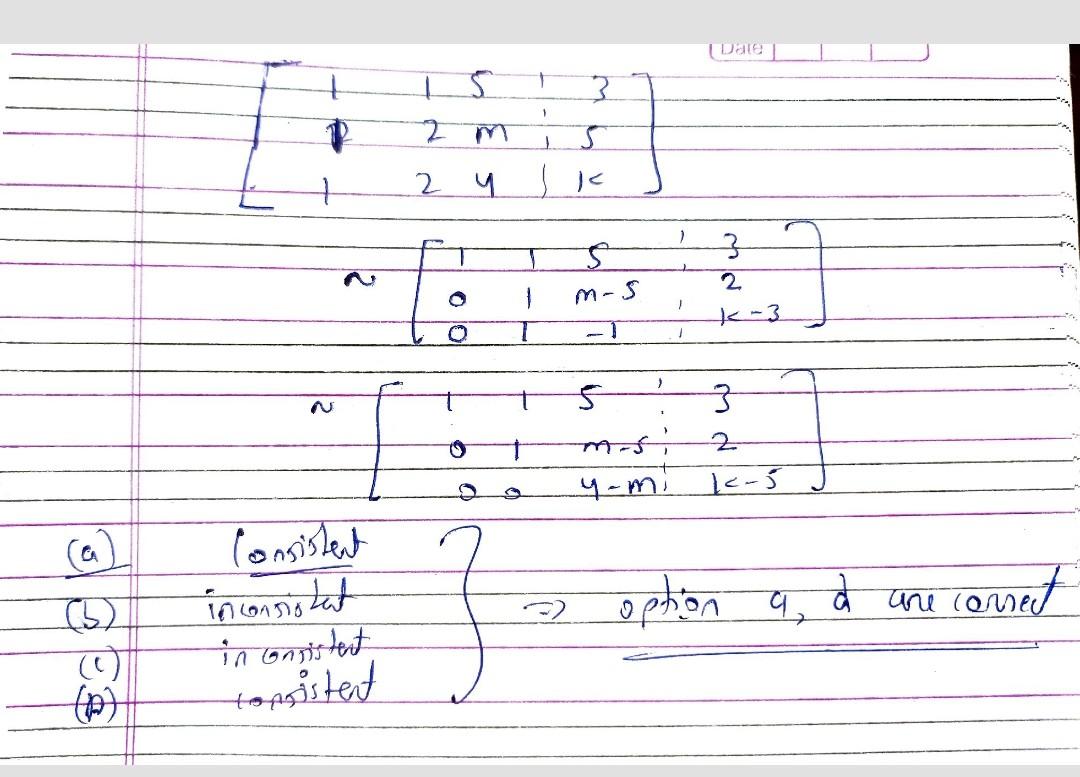 Date
1 1 5 ¦ 3
1 2 m ¦ 5
1 2 4 ¦ k
~ 1 1 5 ¦ 3
0 1 m-5 ¦ 2
0 1 -1 ¦ k-3
~ 1 1 5 ¦ 3
0 1 m-5 ¦ 2
0 0 4-m ¦ k-5
(a) Consistent
(b) inconsistent
(c) inconsistent
(D) consistent
⇒ option a, d are correct